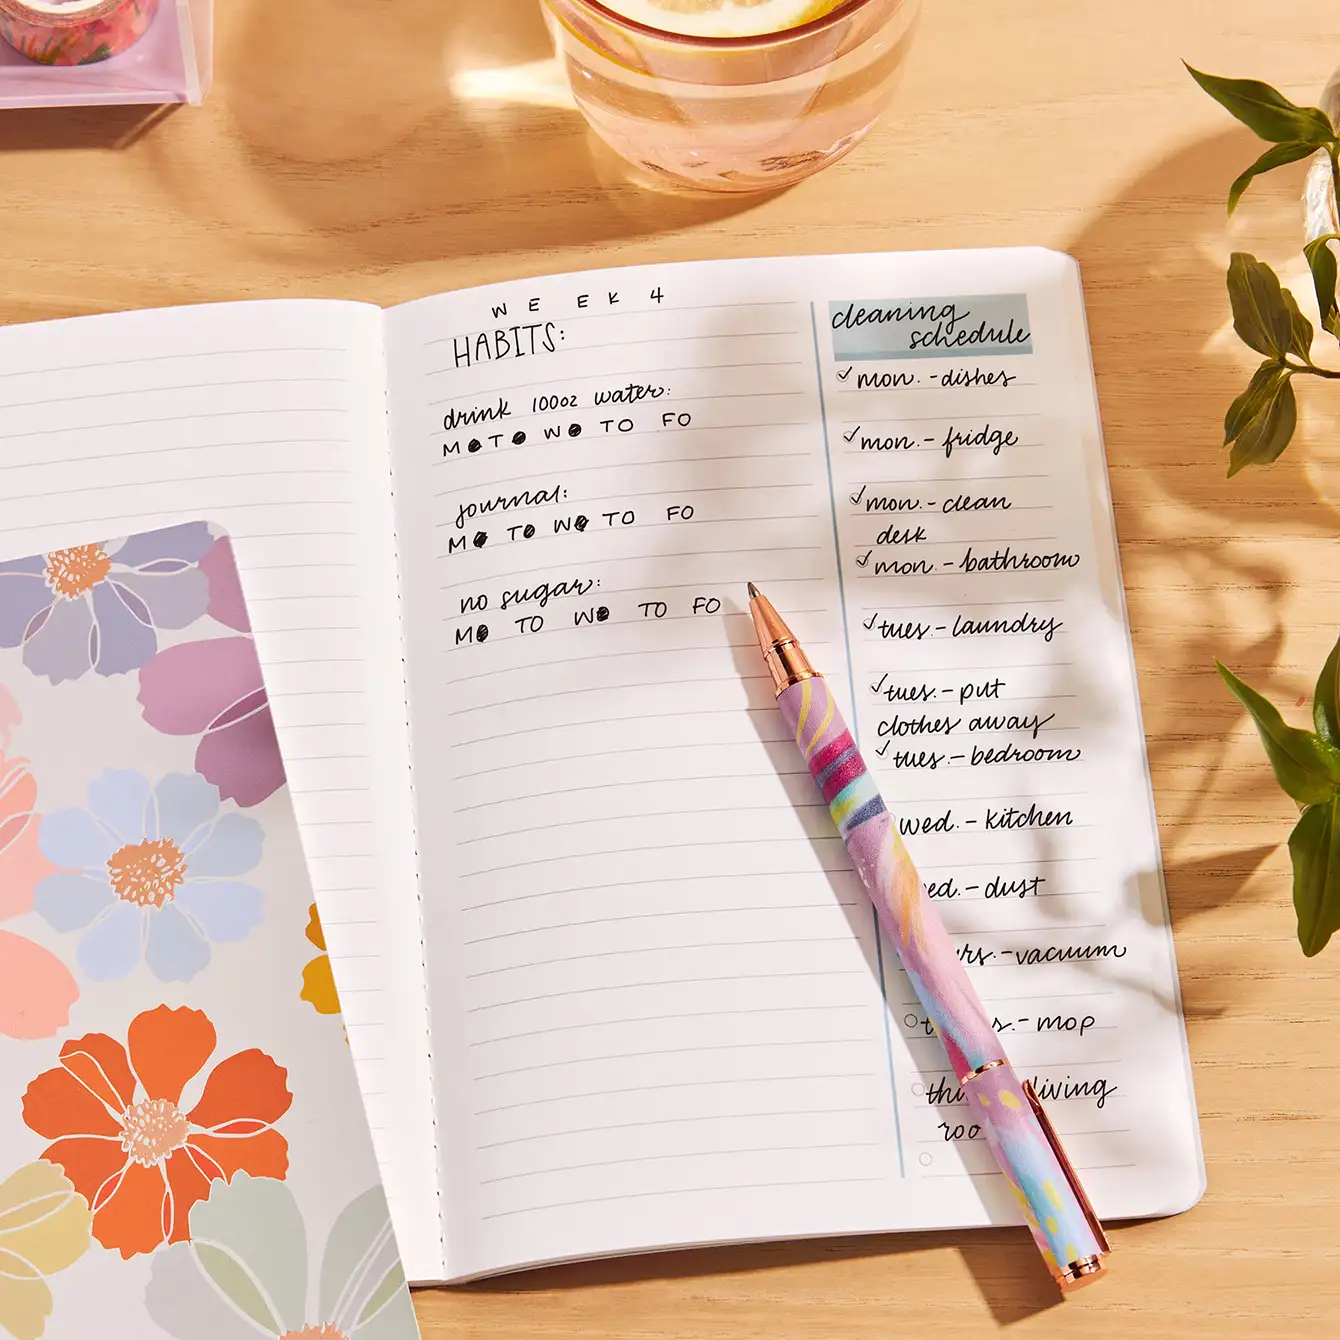 WEEK 4
HABITS:
drink 100oz water:
M T W T F
journal:
M T W T F
no sugar:
M T W T F
cleaning
schedule
mon. - dishes
mon. - fridge
mon. - clean
desk
mon. - bathroom
tues. - laundry
tues. - put
clothes away
tues. - bedroom
wed. - kitchen
- dust
- vacuum
- mop
living